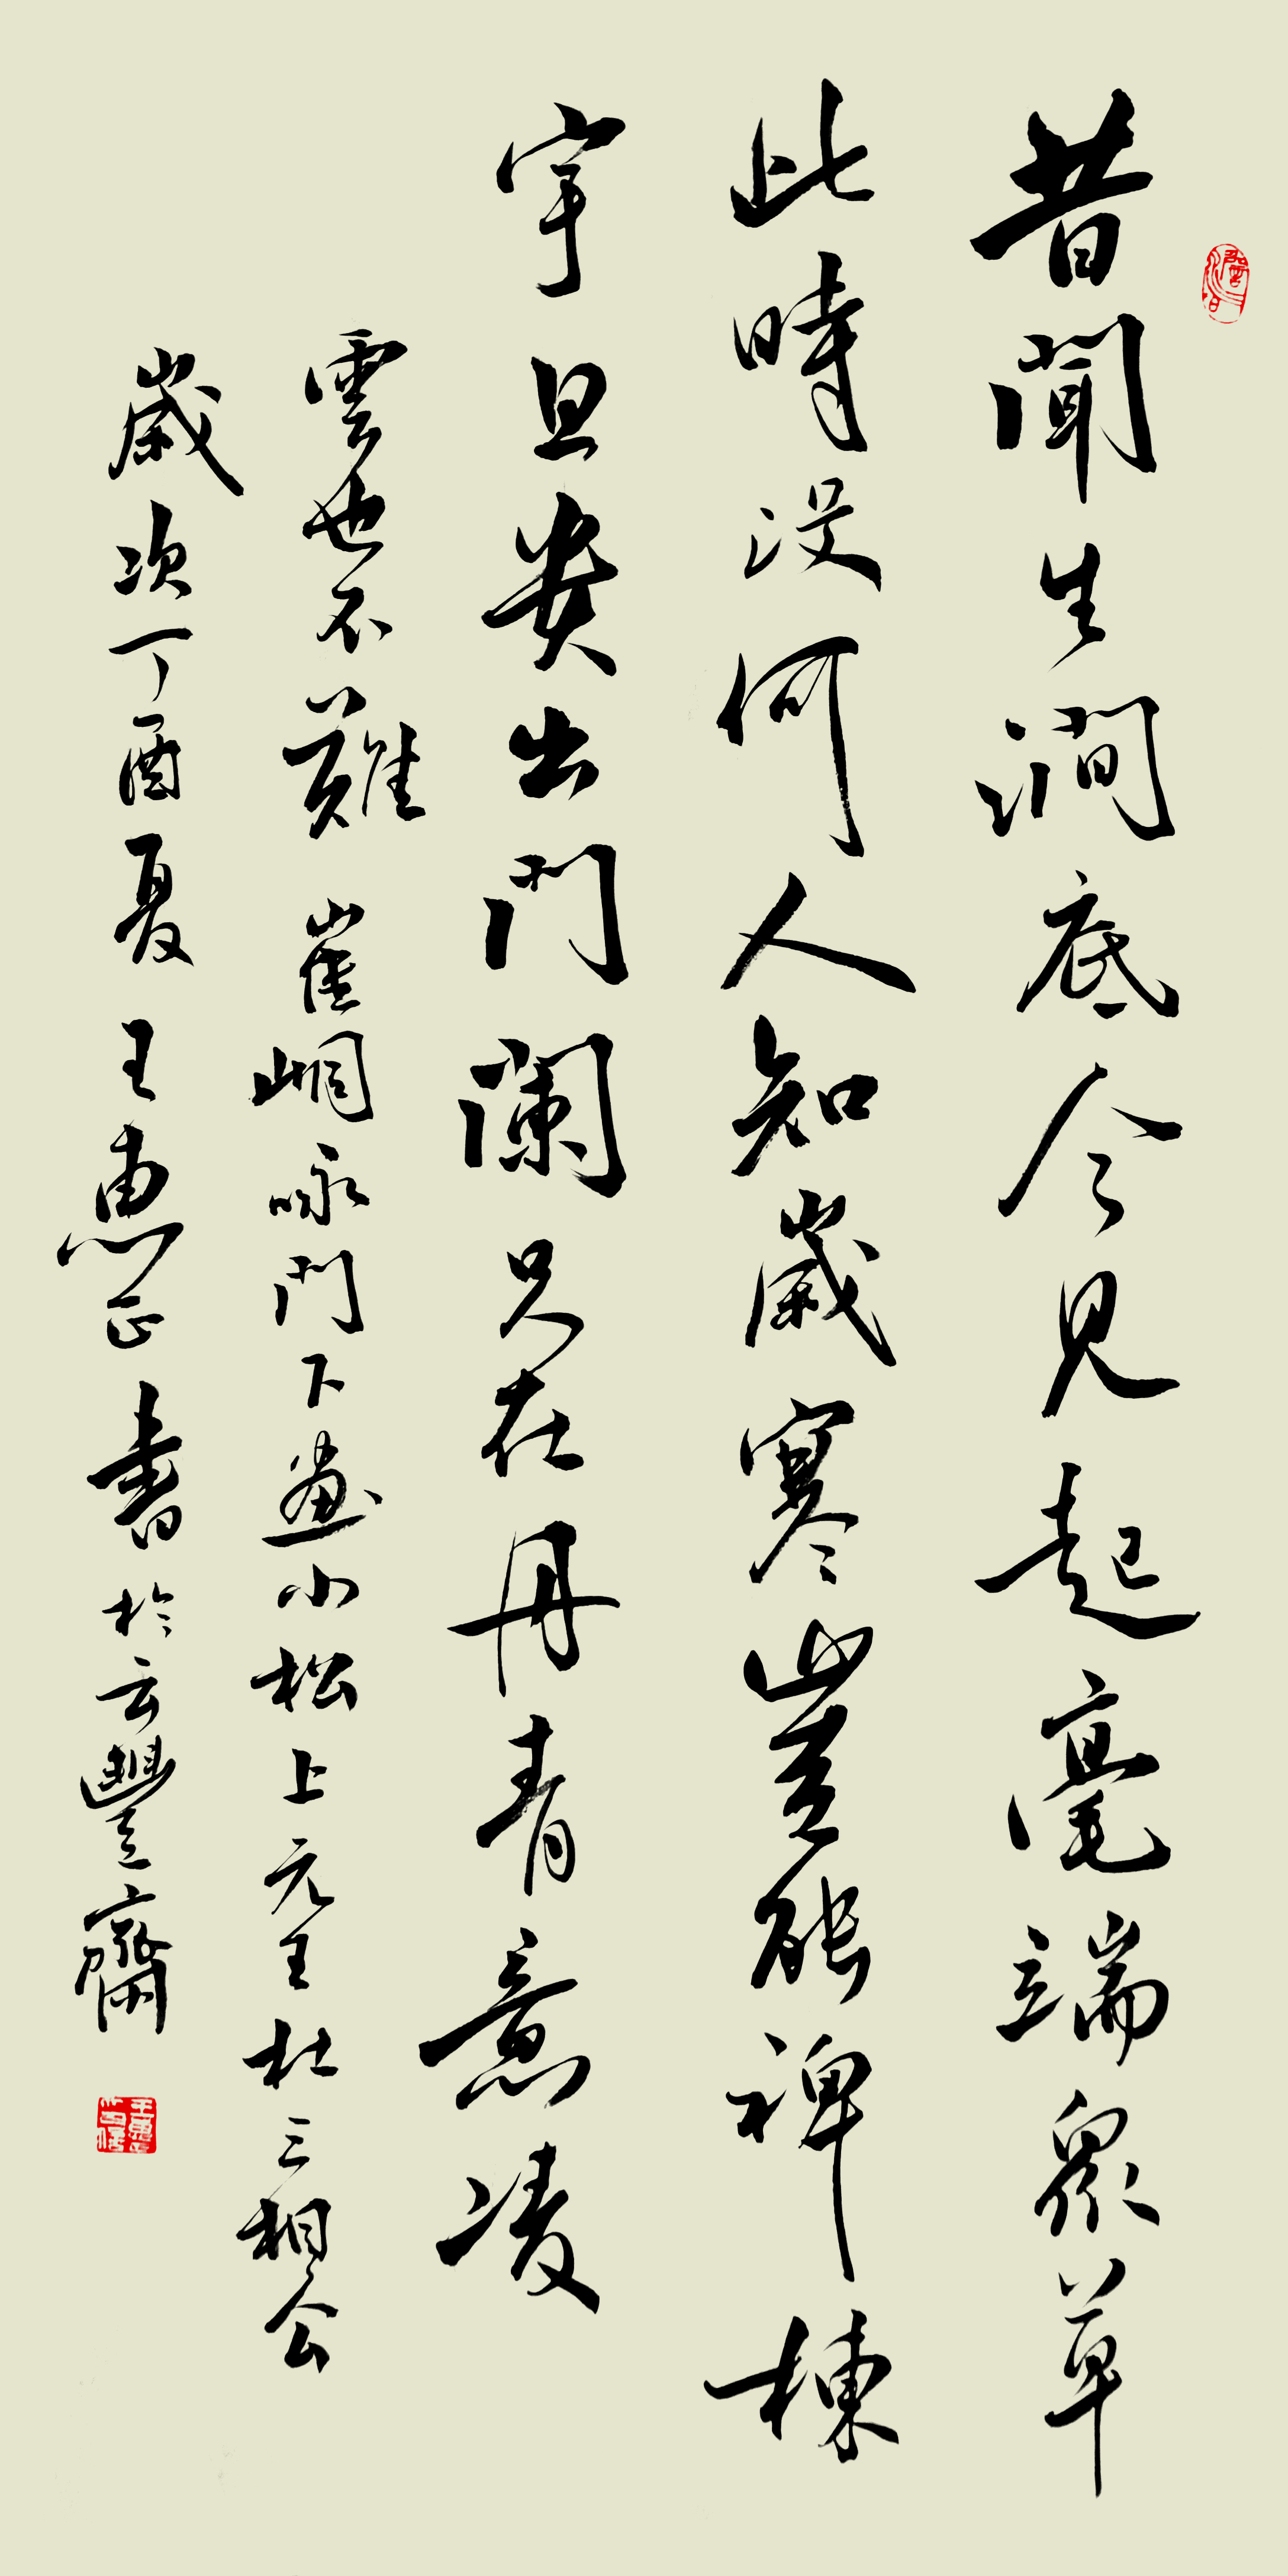 昔聞生澗底今見起毫端眾草
此時没何人知歲寒豈能裨棟
宇且貴出門闌只在丹青意凌
雲也不難 崔峒咏門下畫小松上元王杜三相公
歲次丁酉夏 王惠正書於云豐齋